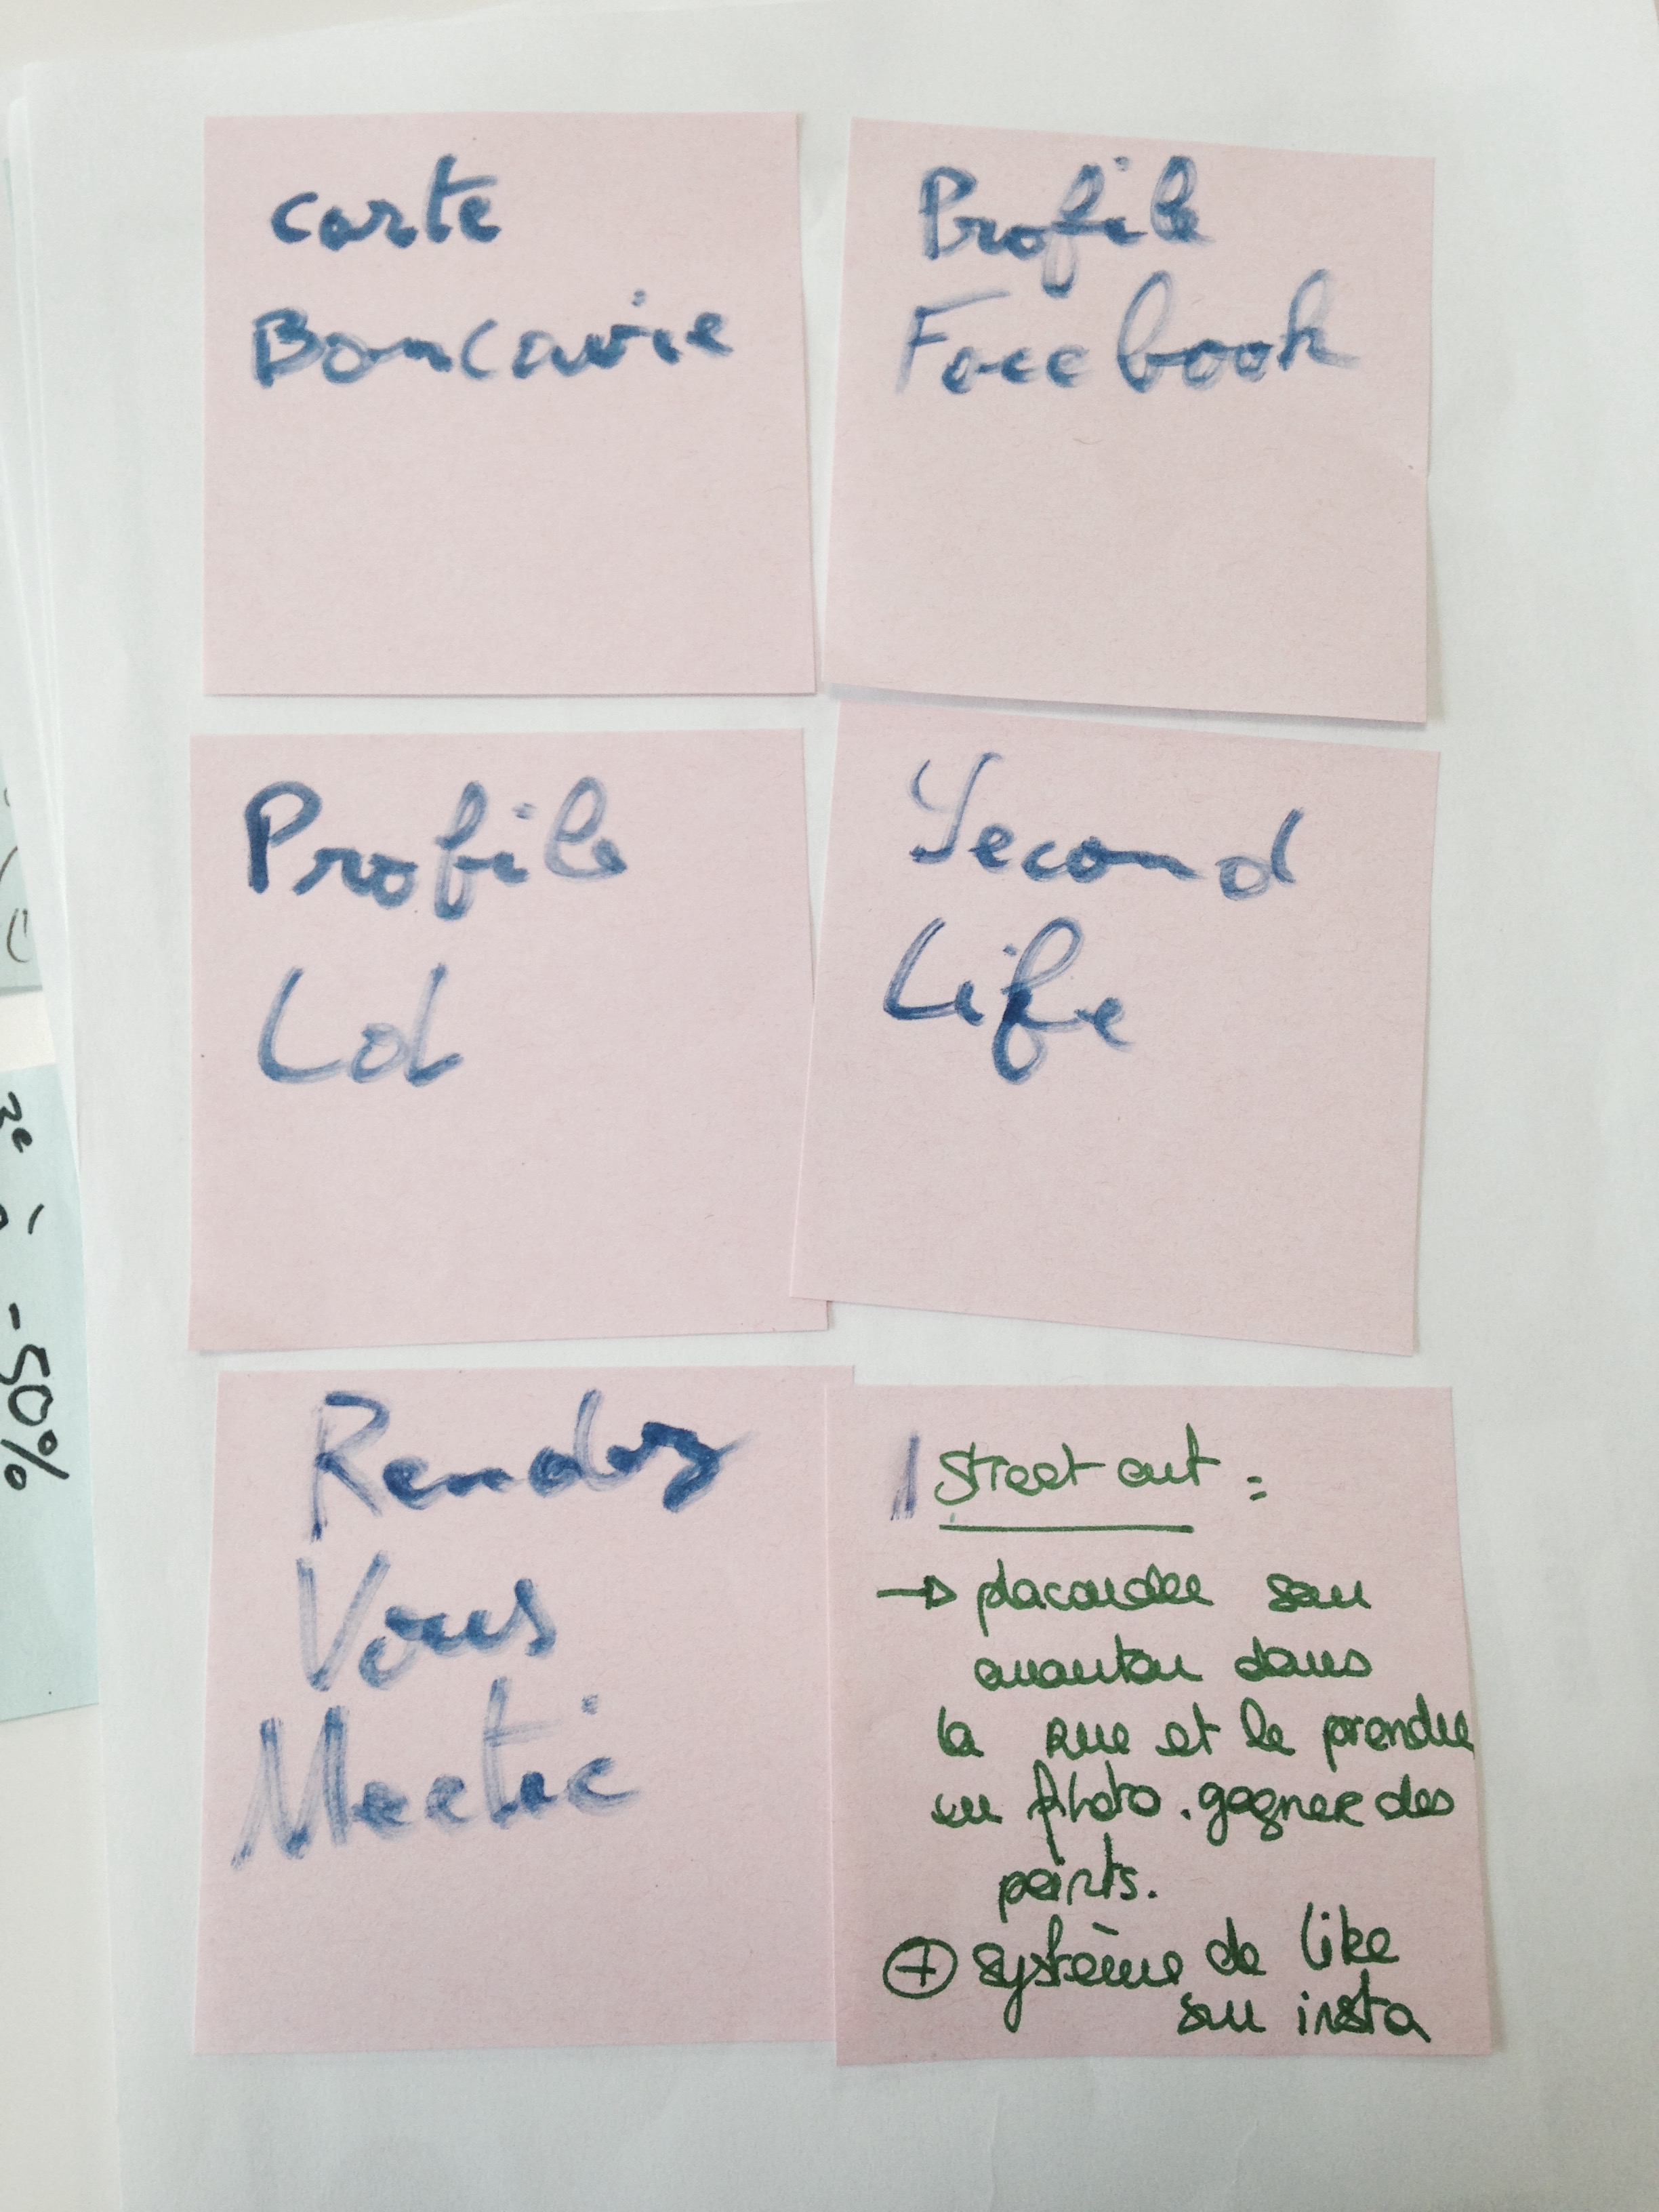 carte
Bancaire
Profile
Facebook
Profile
LoL
Second
Life
Rendez
Vous
Meetic
Street art :
→ placarder son
avatar dans
la rue et le prendre
en photo. gagner des
points.
⊕ système de like
sur insta
3e
à
-50%